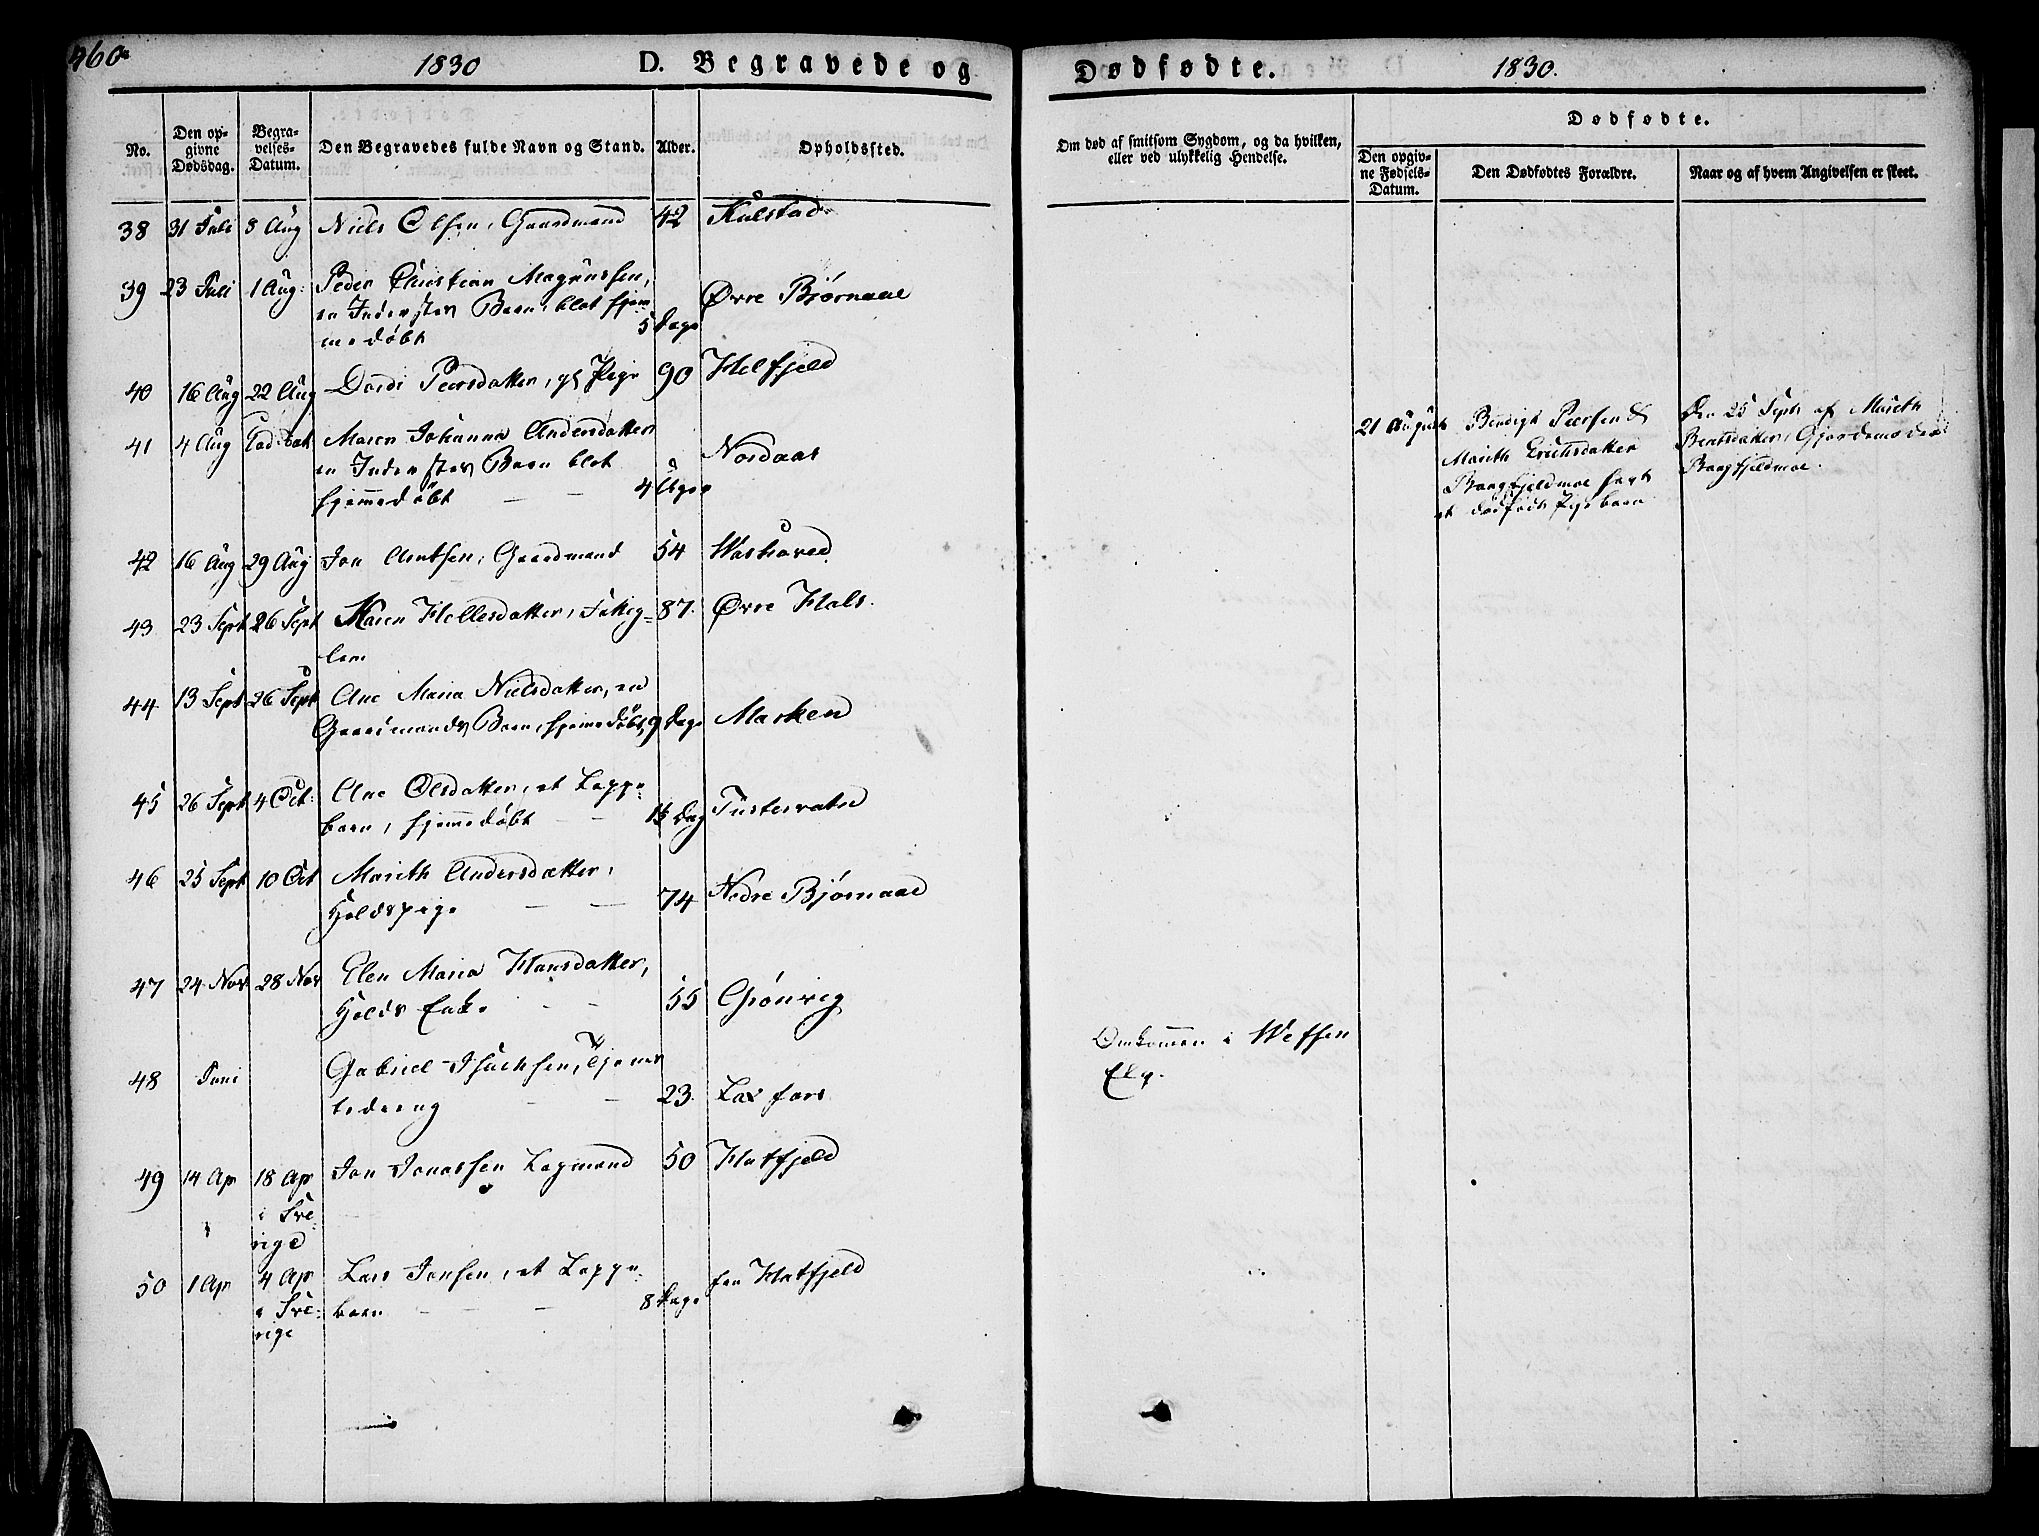 460
1830 D. Begravede og
No.
Den op-
givne
Dødsdag.
Begra-
velses-
Datum.
Den Begravedes fulde Navn og Stand.
Alder.
Opholdssted.
38 31 Juli 8 Aug Niels Olsen, Gaardmand 42 Kulstad
39 23 Juli 1 Aug: Peder Christian Magnussen,
en Inderstes Barn, blot hjem
me døbt 5 Dage Øvre Bjørnaae
40 16 Aug 22 Aug Dordi Peersdatter, gl Pige 90 Helfjeld
41 4 Aug Maren Johanna Andersdatter
en Inderstes Barn blot
hjemmedøbt — — 4 Uger Nordaas
42 16 Aug 29 Aug Jon Arntsen, Gaardmand 54
43 23 Sept 26 Sept Karen Hellesdatter, Fattig=
lem 87. Øvre Hals.
44 13 Sept 26 Sept Ane Maria Nielsdatter, en
Gaardmands Barn, hjemmedøbt, 9 Dage Marken
45 26 Sept 4 Oct: Ane Olsdatter, et Lappe-
barn, hjemmedøbt — — Dag Tustervatn
46 25 Sept 10 Oct Marith Andersdatter,
Holdspige — — 74 Nedre Bjørnaae
47 24 Nov 28 Nov Elen Maria Hansdatter,
Holds Enke — — 55 Grønvig
48 Juni Gabriel Isachsen, Tjenes
tedreng — — 23. Laxfors
49 14 Ap 18 Ap
i Sve
rige Jon Jonassen Lapmand 50 Hatfjeld
50 1 Ap 4 Ap
i Sve
rige Lars Jonsen, et Lappe-
barn — — — 8 Dage fra Hatfjeld
Dødfødte. 1830.
Om død af smitsom Sygdom, og da hvilken,
eller ved ulykkelig Hendelse.
Dødfødte.
Den opgiv-
ne Fødsels-
Datum.
Den Dødfødtes Forældre.
Naar og af hvem Angivelsen er skeet.
21 August Bendigt Peersen &
Marith Erichsdatter
Baagfjeldmoe havt
et dødfødt Pigebarn
Den 25 Sept: af Marith
Bentsdatter, Gjordemoder
Baagfjeldmoe.
Omkommen i Wefsen
Elv.